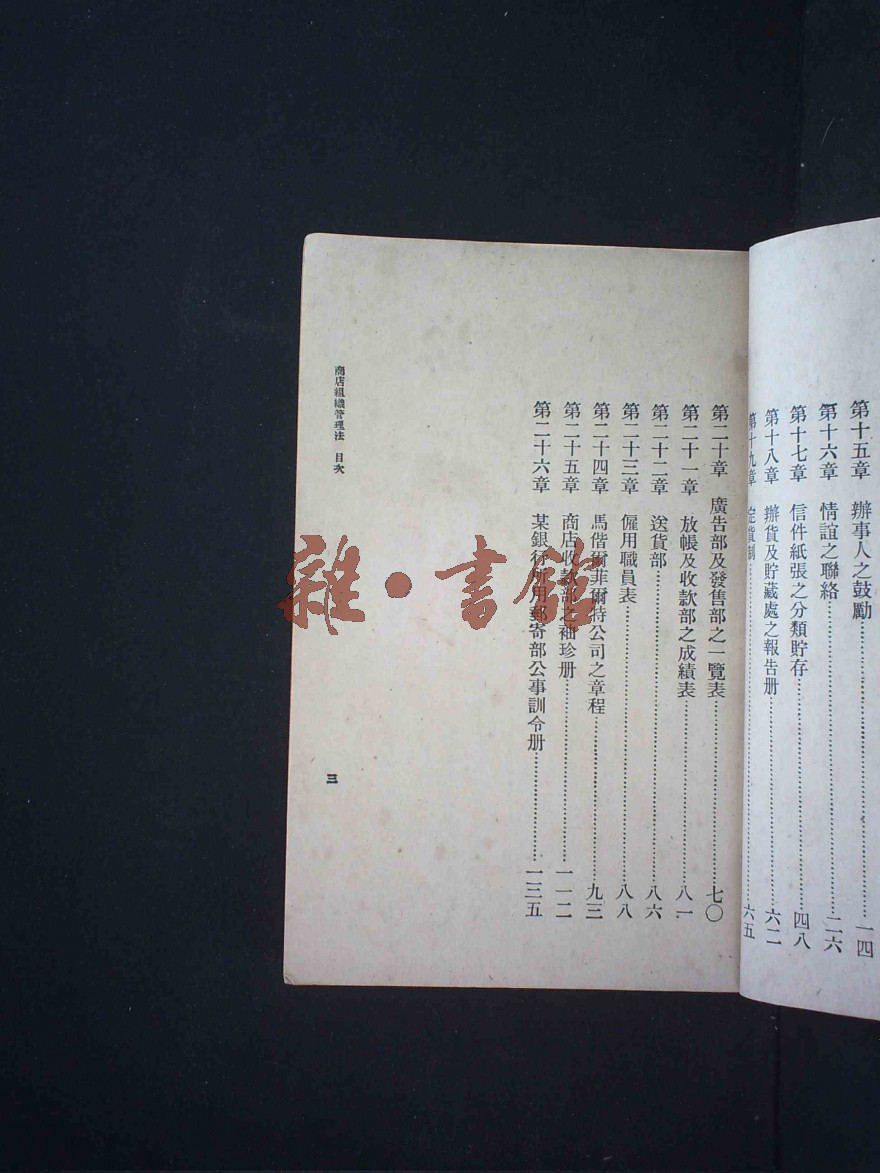 第十五章　辦事人之鼓勵……一四
第十六章　情誼之聯絡……二六
第十七章　信件紙張之分類貯存……四八
第十八章　辦貨及貯藏處之報告册……六二
第十九章　定貨制……六五
第二十章　廣告部及發售部之一覽表……七〇
第二十一章　放帳及收款部之成績表……八一
第二十二章　送貨部……八六
第二十三章　僱用職員表……八八
第二十四章　馬偕爾菲爾特公司之章程……九三
第二十五章　商店收款部之袖珍册……一一二
第二十六章　某銀行所用郵寄部公事訓令册……一三五
商店組織管理法　目次
三
雜·書館